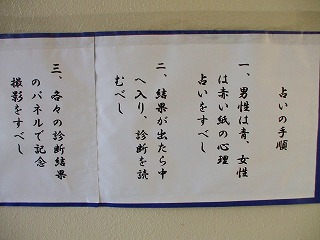 占いの手順
一、男性は青、女性
は赤い紙の心理
占いをすべし
二、結果が出たら中
へ入り、診断を読
むべし
三、各々の診断結果
のパネルで記念
撮影をすべし